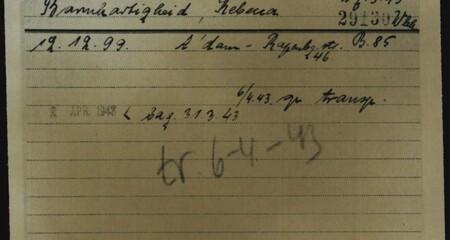 Barmhartigheid, Rebecca
29130 Vbg
12.12.99. A'dam - Rapenbg. str. B. 85
46
6/4.43. gr. transp.
2 APR 1943 L Sag. 31.3.43
tr. 6-4-43